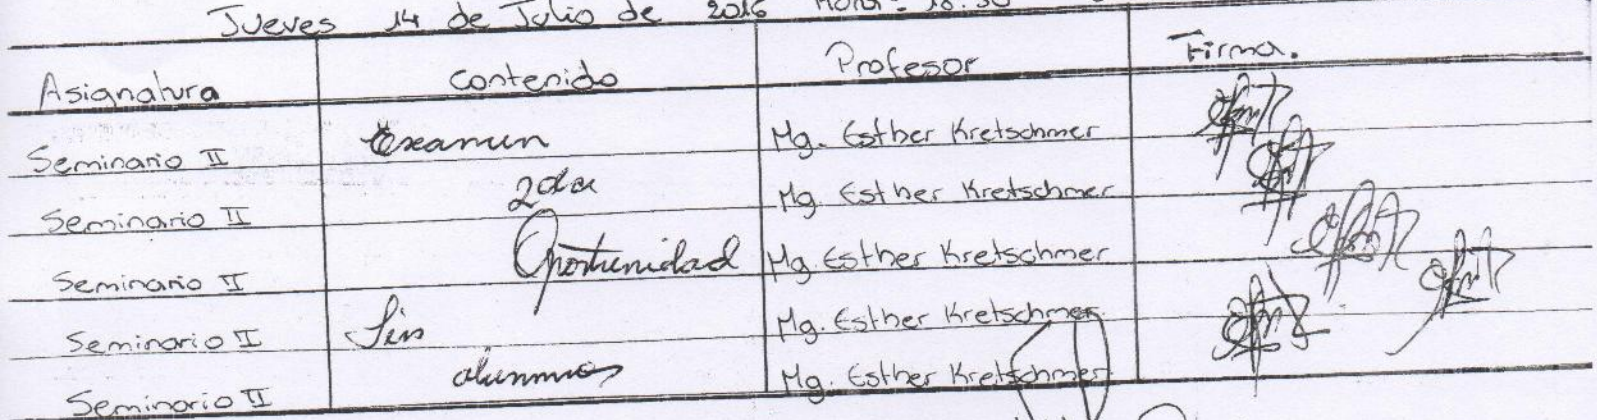 Jueves 14 de Julio de 2016 Hora: 18:30
Asignatura Contenido Profesor Firma.
Seminario II Examen Mg. Esther Kretschmer
Seminario II 2da Mg. Esther Kretschmer
Seminario II Oportunidad Mg. Esther Kretschmer
Seminario II Sin Mg. Esther Kretschmer
Seminario II alumnos Mg. Esther Kretschmer